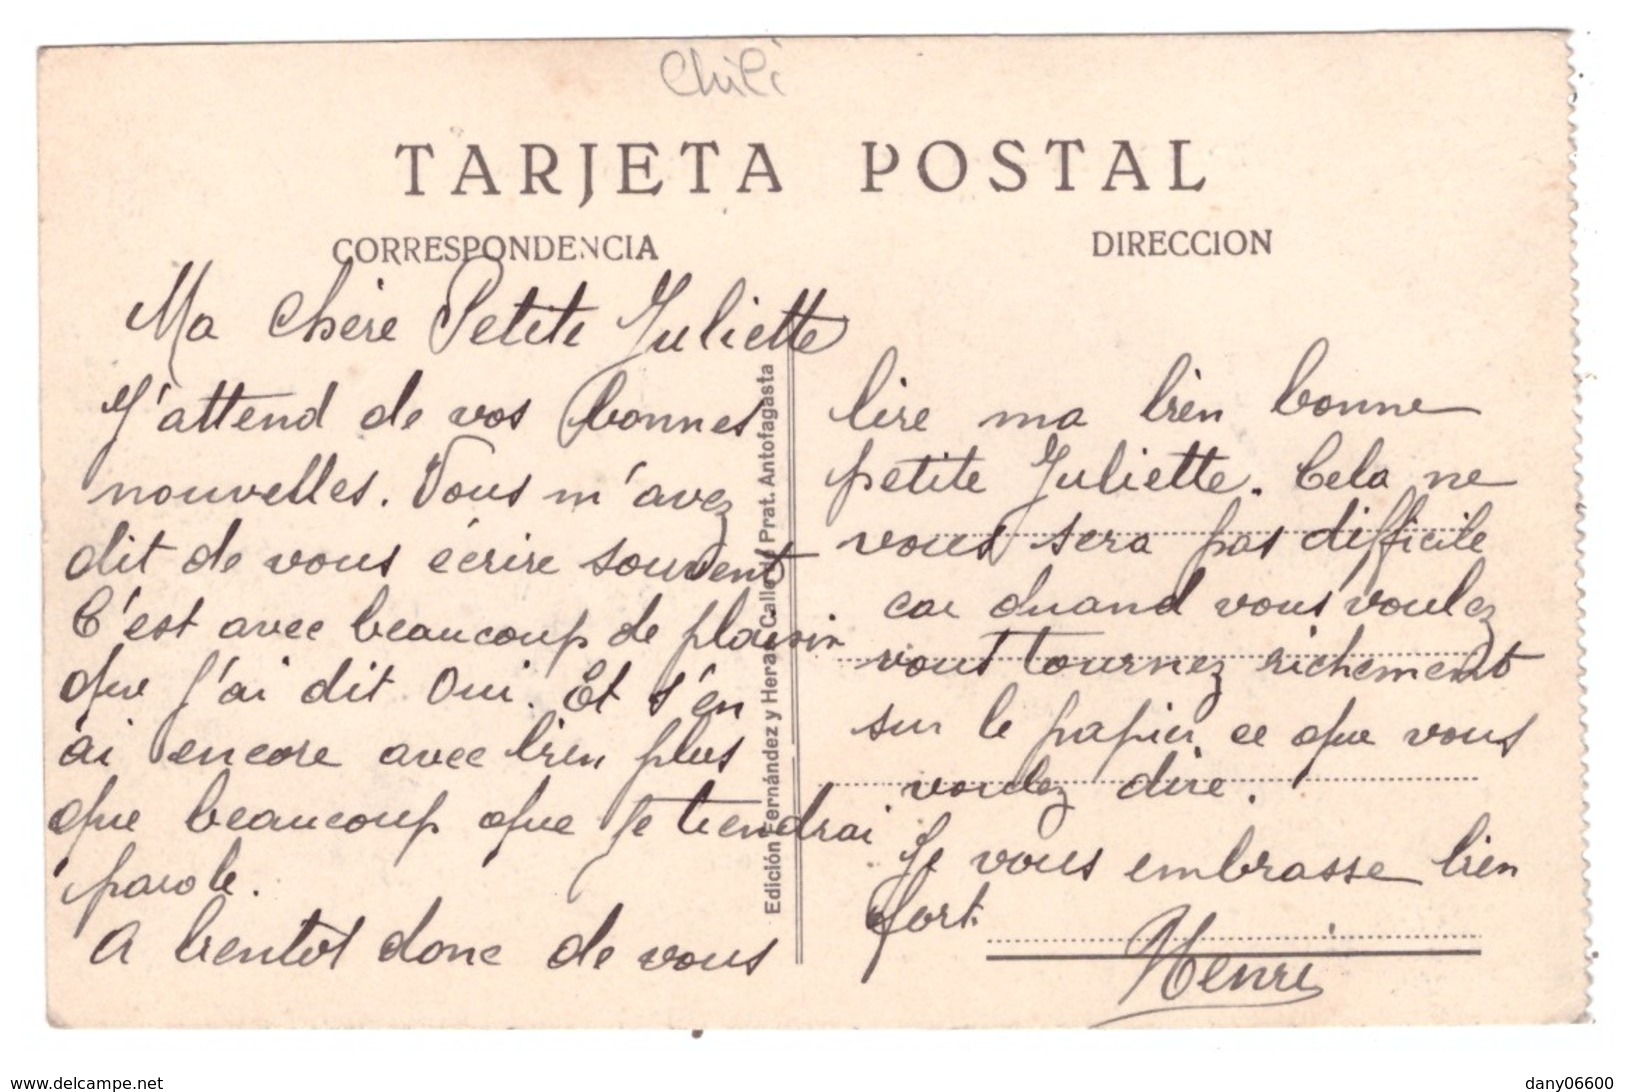 Chili
TARJETA POSTAL
CORRESPONDENCIA
DIRECCION
Ma Chère Petite Juliette
J'attend de vos bonnes
nouvelles. Vous m'avez
dit de vous écrire souvent
C'est avec beaucoup de plaisir
que J'ai dit Oui. Et s'en
ai encore avec bien plus
que beaucoup que Je tiendrai
parole.
A bientot donc de vous
Edición Fernández y Heras Calle de Prat. Antofagasta
lire ma bien bonne
petite Juliette. Cela ne
vous sera pas difficile
car quand vous voulez
vous tournez richement
sur le papier ce que vous
voulez dire.
Je vous embrasse bien
fort.
Henri
delcampe.net
dany06600